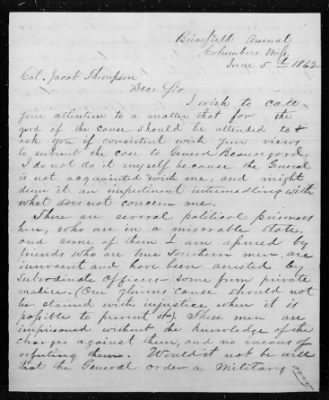 Briarfield Arsenal
Columbus Miss,
June 5th 1862
Col. Jacob Thompson
Dear Sir
I wish to call
your attention to a matter that for the
good of the cause should be attended to &
ask you if consistent with your views
to submit the case to General Beauregard.
I do not do it myself because the General
is not acquainted with me, and might
deem it an impertinent intermeddling with
what does not concern me.
There are several political prisoners
here, who are in a miserable state
and some of them I am assured by
friends who are true Southern men, are
innocent and have been arrested by
Subordinate Officers some from private
malice. (Our glorious cause should not
be stained with injustice when it is
possible to prevent it). These men are
imprisoned without the knowledge of the
charges against them, and no means of
refuting them. Would it not be well
that the General order a Military